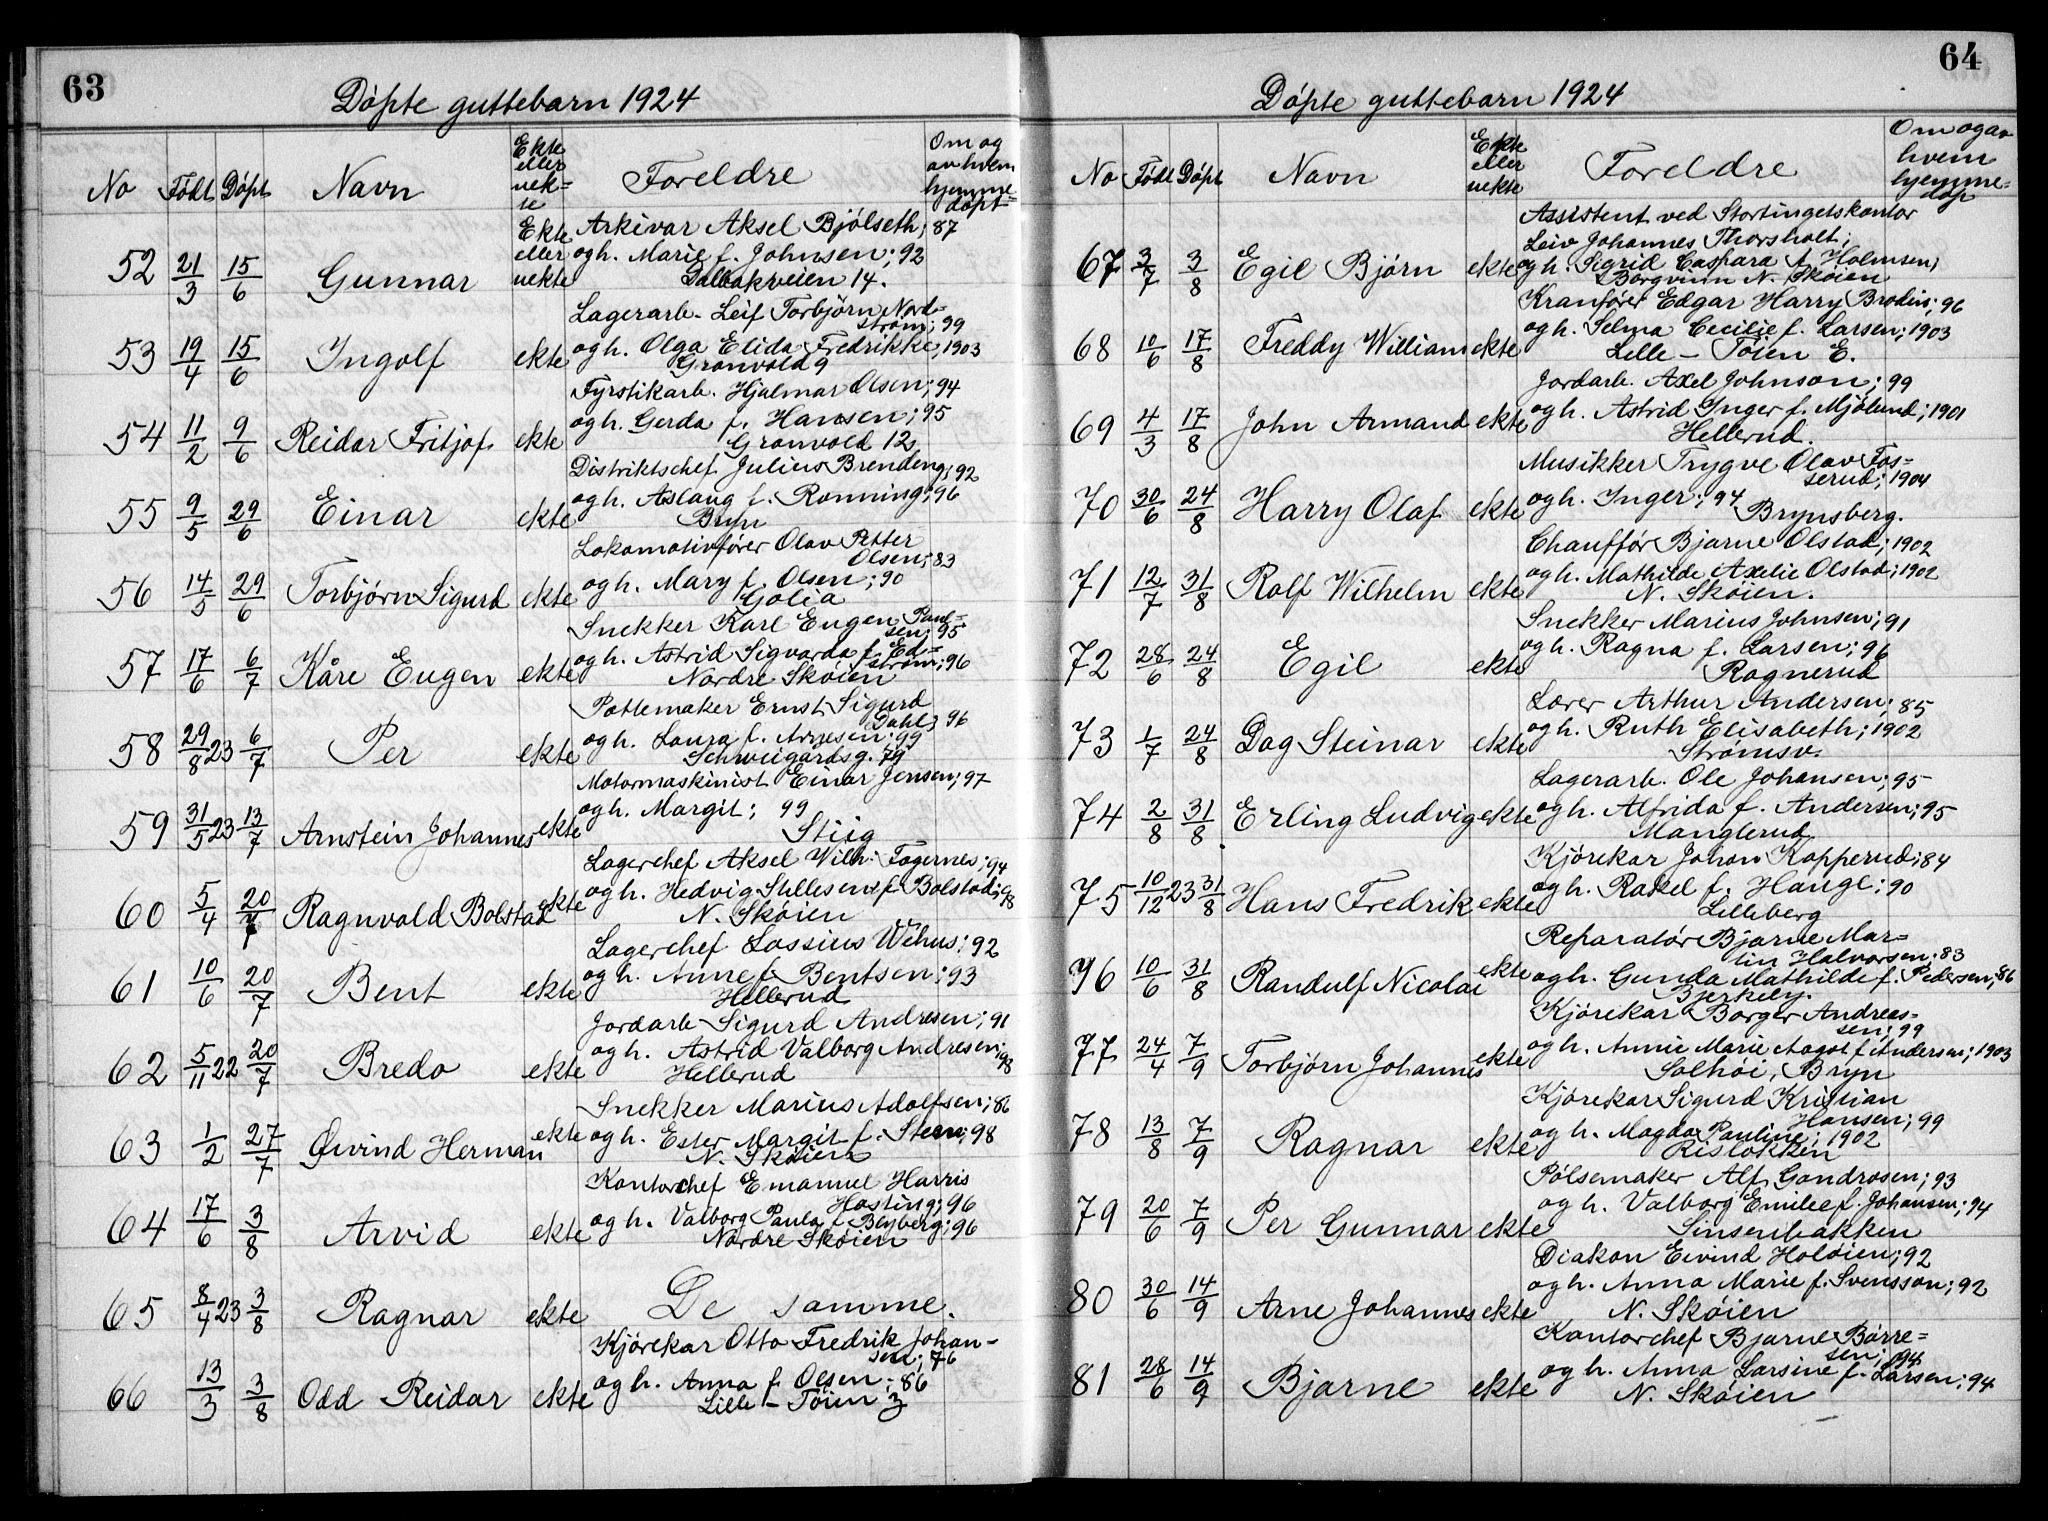 63
Døpte guttebarn 1924
No Født Døpt Navn Ekte eller uek=te Foreldre Om og av hvem hjemme=døpt
52 21/3 15/6 Gunnar Ekte eller uekte Arkivar Aksel Bjølseth; 87
og h. Marie f. Johnsen; 92
Dalbakveien 14.
53 19/4 15/6 Ingolf ekte Lagerarb. Leif Torbjørn Nord=
strøm; 99
og h. Olga Elida Fredrikke; 1903
Grønvold 9
54 11/2 9/6 Reidar Fritjof ekte Fyrstikarb. Hjalmar Olsen; 94
og h. Gerda f. Hansen; 95
Grønvold 12
55 9/5 29/6 Einar ekte Distriktschef Julius Brendeng; 92
og h. Aslaug f. Rønning; 96
Bryn
56 14/5 29/6 Torbjørn Sigurd ekte Lokomotivfører Olav Petter
Olsen; 83
og h. Mary f. Olsen; 90
Golia
57 17/6 6/7 Kåre Eugen ekte Snekker Karl Eugen Paul=
sen; 95
og h. Astrid Sigvarda f. Ed=
strøm; 96
Nordre Skøien
58 29/8 23 6/7 Per ekte Pottemaker Ernst Sigurd
Dahl; 96
og h. Laura f. Arnesen; 99
Schweigardsg. 79
59 31/5 23 13/7 Arnstein Johannes ekte Motormaskinist Einar Jensen; 97
og h. Margit; 99
Stiig
60 5/4 20/7 Ragnvald Bolstad ekte Lagerchef Aksel Wilh. Fagernes; 94
og h. Hedvig Stillesen f. Bolstad; 98
N. Skøien
61 10/6 20/7 Bent ekte Lagerchef Lassius Wehus; 92
og h. Anne f. Bentsen; 93
Hellerud
62 5/11 22 20/7 Bredo ekte Jordarb. Sigurd Andresen; 91
og h. Astrid Valborg Andresen; 98
Hellerud
63 1/2 27/7 Øivind Herman ekte Snekker Marius Adolfsen; 86
og h. Ester Margit f. Steen; 98
N. Skøien
64 17/6 3/8 Arvid ekte Kontorchef Emanuel Harris
Hasting; 96
og h. Valborg Paula f. Blyberg; 96
Nordre Skøien
65 8/4 23 3/8 Ragnar ekte De samme.
66 13/3 3/8 Odd Reidar ekte Kjørekar Otto Fredrik Johan-
sen; 76
og h. Anna f. Olsen; 86
Lille-Tøien 3
64
Døpte guttebarn 1924
No Født Døpt Navn Ekte eller uekte Foreldre Om og av hvem hjemme=døp
67 3/7 3/8 Egil Bjørn ekte Assistent ved Stortingetskontor
Leiv Johannes Thorsholt;
og h. Sigrid Caspara A. Holmsen;
Borgvinn N. Skøien
68 10/6 17/8 Freddy William ekte Kranfører Edgar Harry Brodin; 96
og h. Selma Cecilie f. Larsen; 1903
Lille-Tøien E.
69 4/3 17/8 John Armand ekte Jordarb. Axel Johnson; 99
og h. Astrid Inger f. Mjølund; 1901
Hellerud.
70 30/6 24/8 Harry Olaf ekte Musikker Trygve Olav Fos=
serud; 1904
og h. Inger; 94
Brynsberg.
71 12/7 31/8 Rolf Wilhelm ekte Chauffør Bjarne Olstad; 1902
og h. Mathilde Axelie Olstad; 1902
N. Skøien.
72 28/6 24/8 Egil ekte Snekker Marius Johnsen; 91
og h. Ragna f. Larsen; 96
Ragnerud
73 1/7 24/8 Dag Steinar ekte Lærer Arthur Andersen; 85
og h. Ruth Elisabeth; 1902
Strømsv.
74 2/8 31/8 Erling Ludvig ekte Lagerarb. Ole Johansen; 95
og h. Alfrida f. Andersen; 95
Manglerud
75 10/12 23 31/8 Hans Fredrik ekte Kjørekar Johan Kopperud; 84
og h. Rakel f. Hauge; 90
Lilleberg
76 10/6 31/8 Randulf Nicolai ekte Reparatør Bjarne Mar=
tin Halvorsen; 83
og h. Gunda Mathilde f. Pedersen; 86
Bjerkely.
77 24/4 7/9 Torbjørn Johannes ekte Kjørekar Borger Andreas=
sen; 99
og h. Annie Marie Aagot f. Andersen; 1903
Solhøi, Bryn
78 13/8 7/9 Ragnar ekte Kjørekar Sigurd Kristian
Hansen; 99
og h. Magda Pauline; 1902
Risløkken
79 20/6 7/9 Per Gunnar ekte Pølsemaker Alf Gondrosen; 93
og h. Valborg Emilie f. Johansen; 94
Sinsenbakken
80 30/6 14/9 Arne Johannes ekte Diakon Eivind Holøien; 92
og h. Anna Marie f. Svensson; 92
N. Skøien
81 28/6 14/9 Bjarne ekte Kontorchef Bjarne Børre=
sen; 94
og h. Anna Larsine f. Larsen; 94
N. Skøien